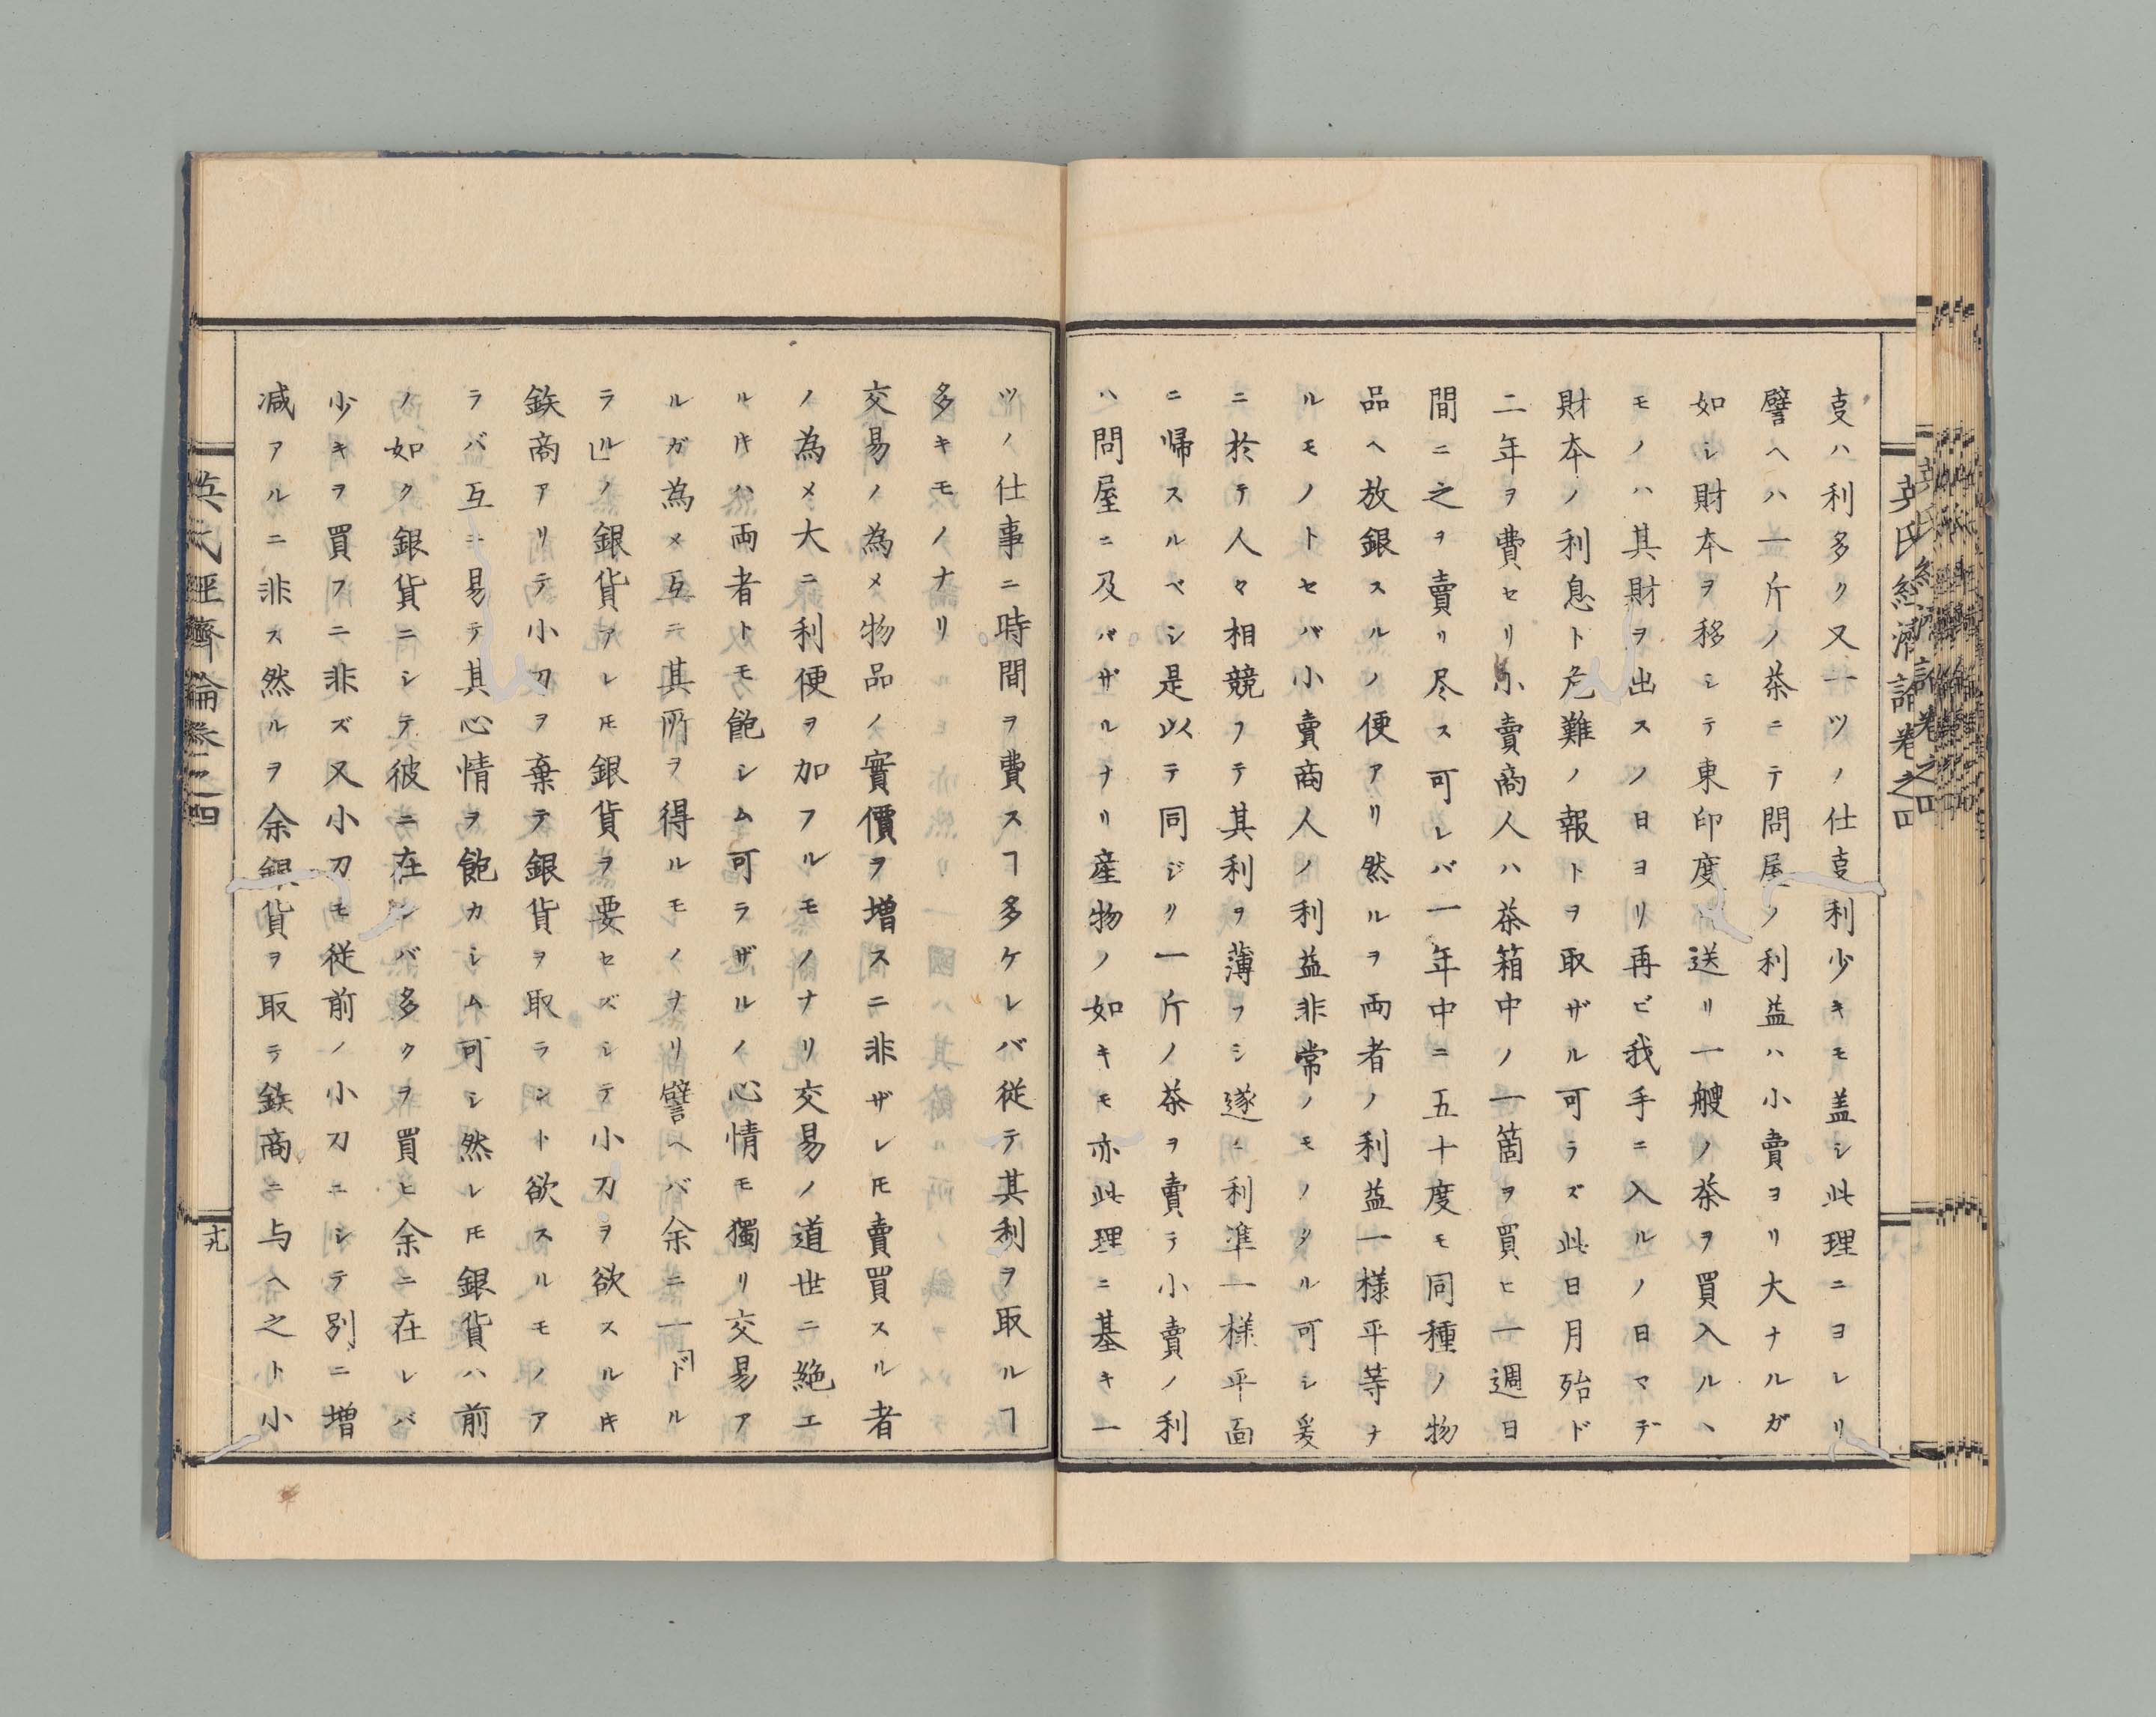 英氏經濟論卷之四
㕝ハ利多ク又一ツノ仕㕝利少キモ盖シ此理ニヨレリ
譬ヘハ一斤ノ茶ニテ問屋ノ利益ハ小賣ヨリ大ナルガ
如シ財本ヲ移シテ東印度ニ送リ一艘ノ茶ヲ買入ルヽ
モノハ其財ヲ出スノ日ヨリ再ビ我手ニ入ルノ日マデ
財本ノ利息ト危難ノ報トヲ取ザル可ラズ此日月殆ド
二年ヲ費セリ小賣商人ハ茶箱中ノ一箇ヲ買ヒ一週日
間ニ之ヲ賣リ尽ス可レバ一年中ニ五十度モ同種ノ物
品ヘ放銀スルノ便アリ然ルヲ両者ノ利益一様平等ナ
ルモノトセバ小賣商人ノ利益非常ノモノタル可シ爰
ニ於テ人々相競フテ其利ヲ薄フシ遂ニ利準一様平面
ニ帰スルベシ是以テ同ジク一斤ノ茶ヲ賣テ小賣ノ利
ハ問屋ニ及バザルナリ産物ノ如キモ亦此理ニ基キ一
ツノ仕事ニ時間ヲ費スヿ多ケレバ従テ其利ヲ取ルヿ
多キモノナリ
交易ノ為メ物品ノ實價ヲ増スニ非ザレ𪜈賣買スル者
ノ為メ大ニ利便ヲ加フルモノナリ交易ノ道世ニ絶エ
ル𬼀ハ両者トモ飽シム可ラザルノ心情モ獨リ交易ア
ルガ為メ互ニ其所ヲ得ルモノナリ譬ヘバ余ニ一「ドル
ラル」ノ銀貨アレ𪜈銀貨ヲ要セズシテ小刀ヲ欲スル𬼀
鉄商アリテ小刀ヲ棄テ銀貨ヲ取ラント欲スルモノア
ラバ互ニ易テ其心情ヲ飽カシム可シ然レ𪜈銀貨ハ前
ノ如ク銀貨ニシテ彼ニ在レバ多クヲ買ヒ余ニ在レバ
少キヲ買フニ非ズ又小刀モ従前ノ小刀ニシテ別ニ増
减アルニ非ス然ルヲ余銀貨ヲ取テ鉄商ニ与ヘ之ト小
英氏經濟論卷之四
十九